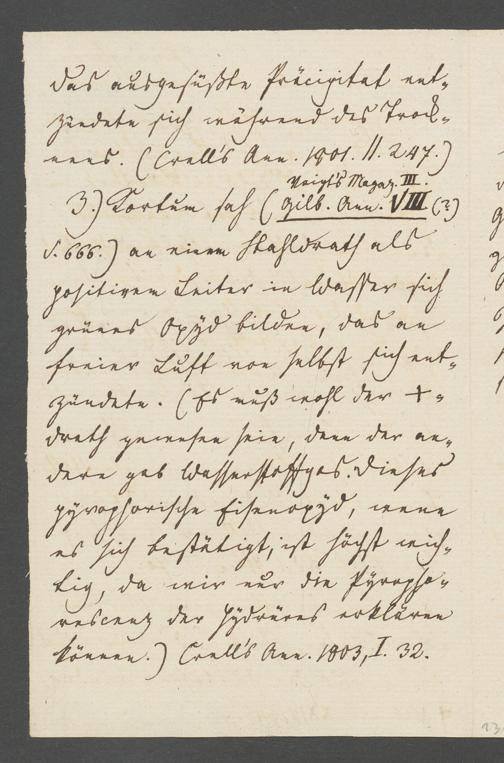 das ausgesüßte Präcipitat ent-
zündete sich während des Trock-
nens. (Crell's Ann. 1801. II. 247.)
Voigt's Magaz. III.
3.) Kortum sah (Gilb. Ann. VIII (?)
S. 666.) an einem Stahldrath als
positivem Leiter in Wasser sich
grünes Oxÿd bilden, das an
freier Luft von selbst sich ent-
zündete. (Es muß wohl der +-
drath gewesen sein, denn der an-
dere gab Wasserstoffgas. Dieses
pÿrophorische Eisenoxÿd, wenn
es sich bestätigt, ist höchst wich-
tig, da wir nur die Pÿropho-
rescenz der Hÿdrüres erklären
können.) Crell's Ann. 1803, I. 32.